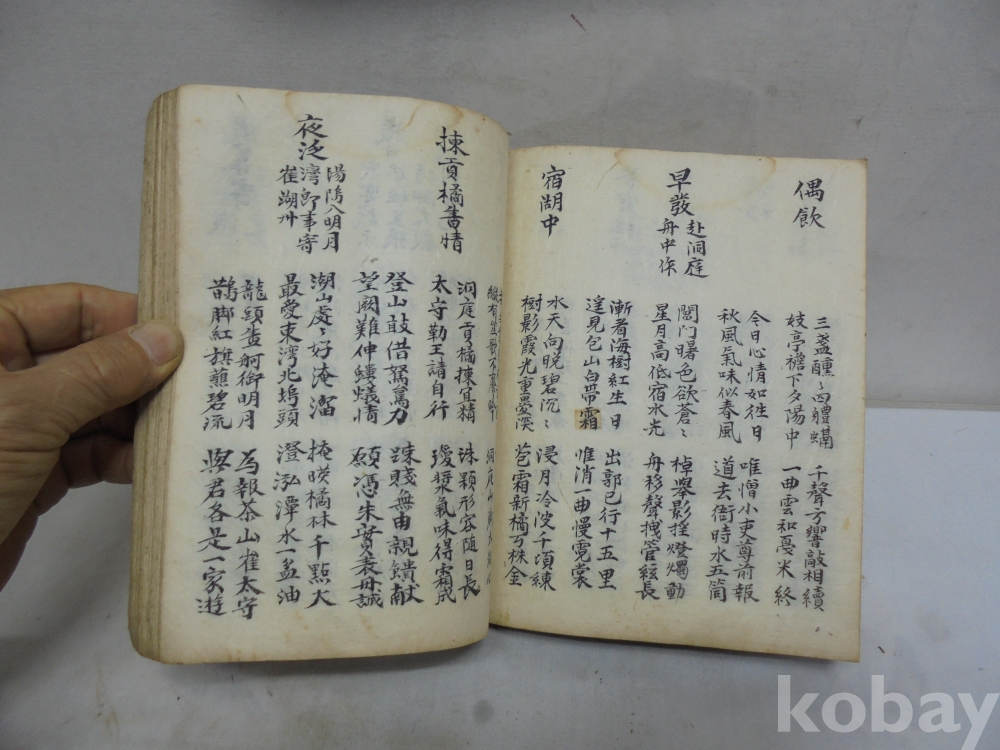 偶飮
三盞醺〻四體螎 千聲方響敲相續
妓亭襜下夕陽中 一曲雲和憂米終
今日心情如往日 唯憎小吏尊前報
秋風氣味似春風 道去衙時水五筒
早發 赴洞庭
舟中作
閶門曙色欲蒼〻 棹擧影搖燈燭動
星月高低宿水光 舟移聲拽管絃長
漸看海樹紅生日 出郭已行十五里
遙見包山白帶霜 惟消一曲慢霓裳
宿湖中
水天向晚碧沉〻 浸月冷波千頃練
樹影霞光重疊深 苞霜新橘万株金
縱有笙歌不廢吟
揀貢橘書情
洞庭貢橘揀宜精 珠顆形容隨日長
太守勤王請自行 瓊漿氣味得霜成
登山敢借駑駘力 踈賤無由親饋献
望闕難伸螻蟻情 願憑朱實表丹誠
夜泛 陽塢入明月
灣卽事寄
崔湖州
湖山處〻好淹溜 掩映橘林千點火
最愛東灣北塢頭 澄泓潭水一盃油
龍頭畫舸銜明月 爲報茶山崔太守
鵲脚紅旗蘸碧流 與君各是一家遊
kobay